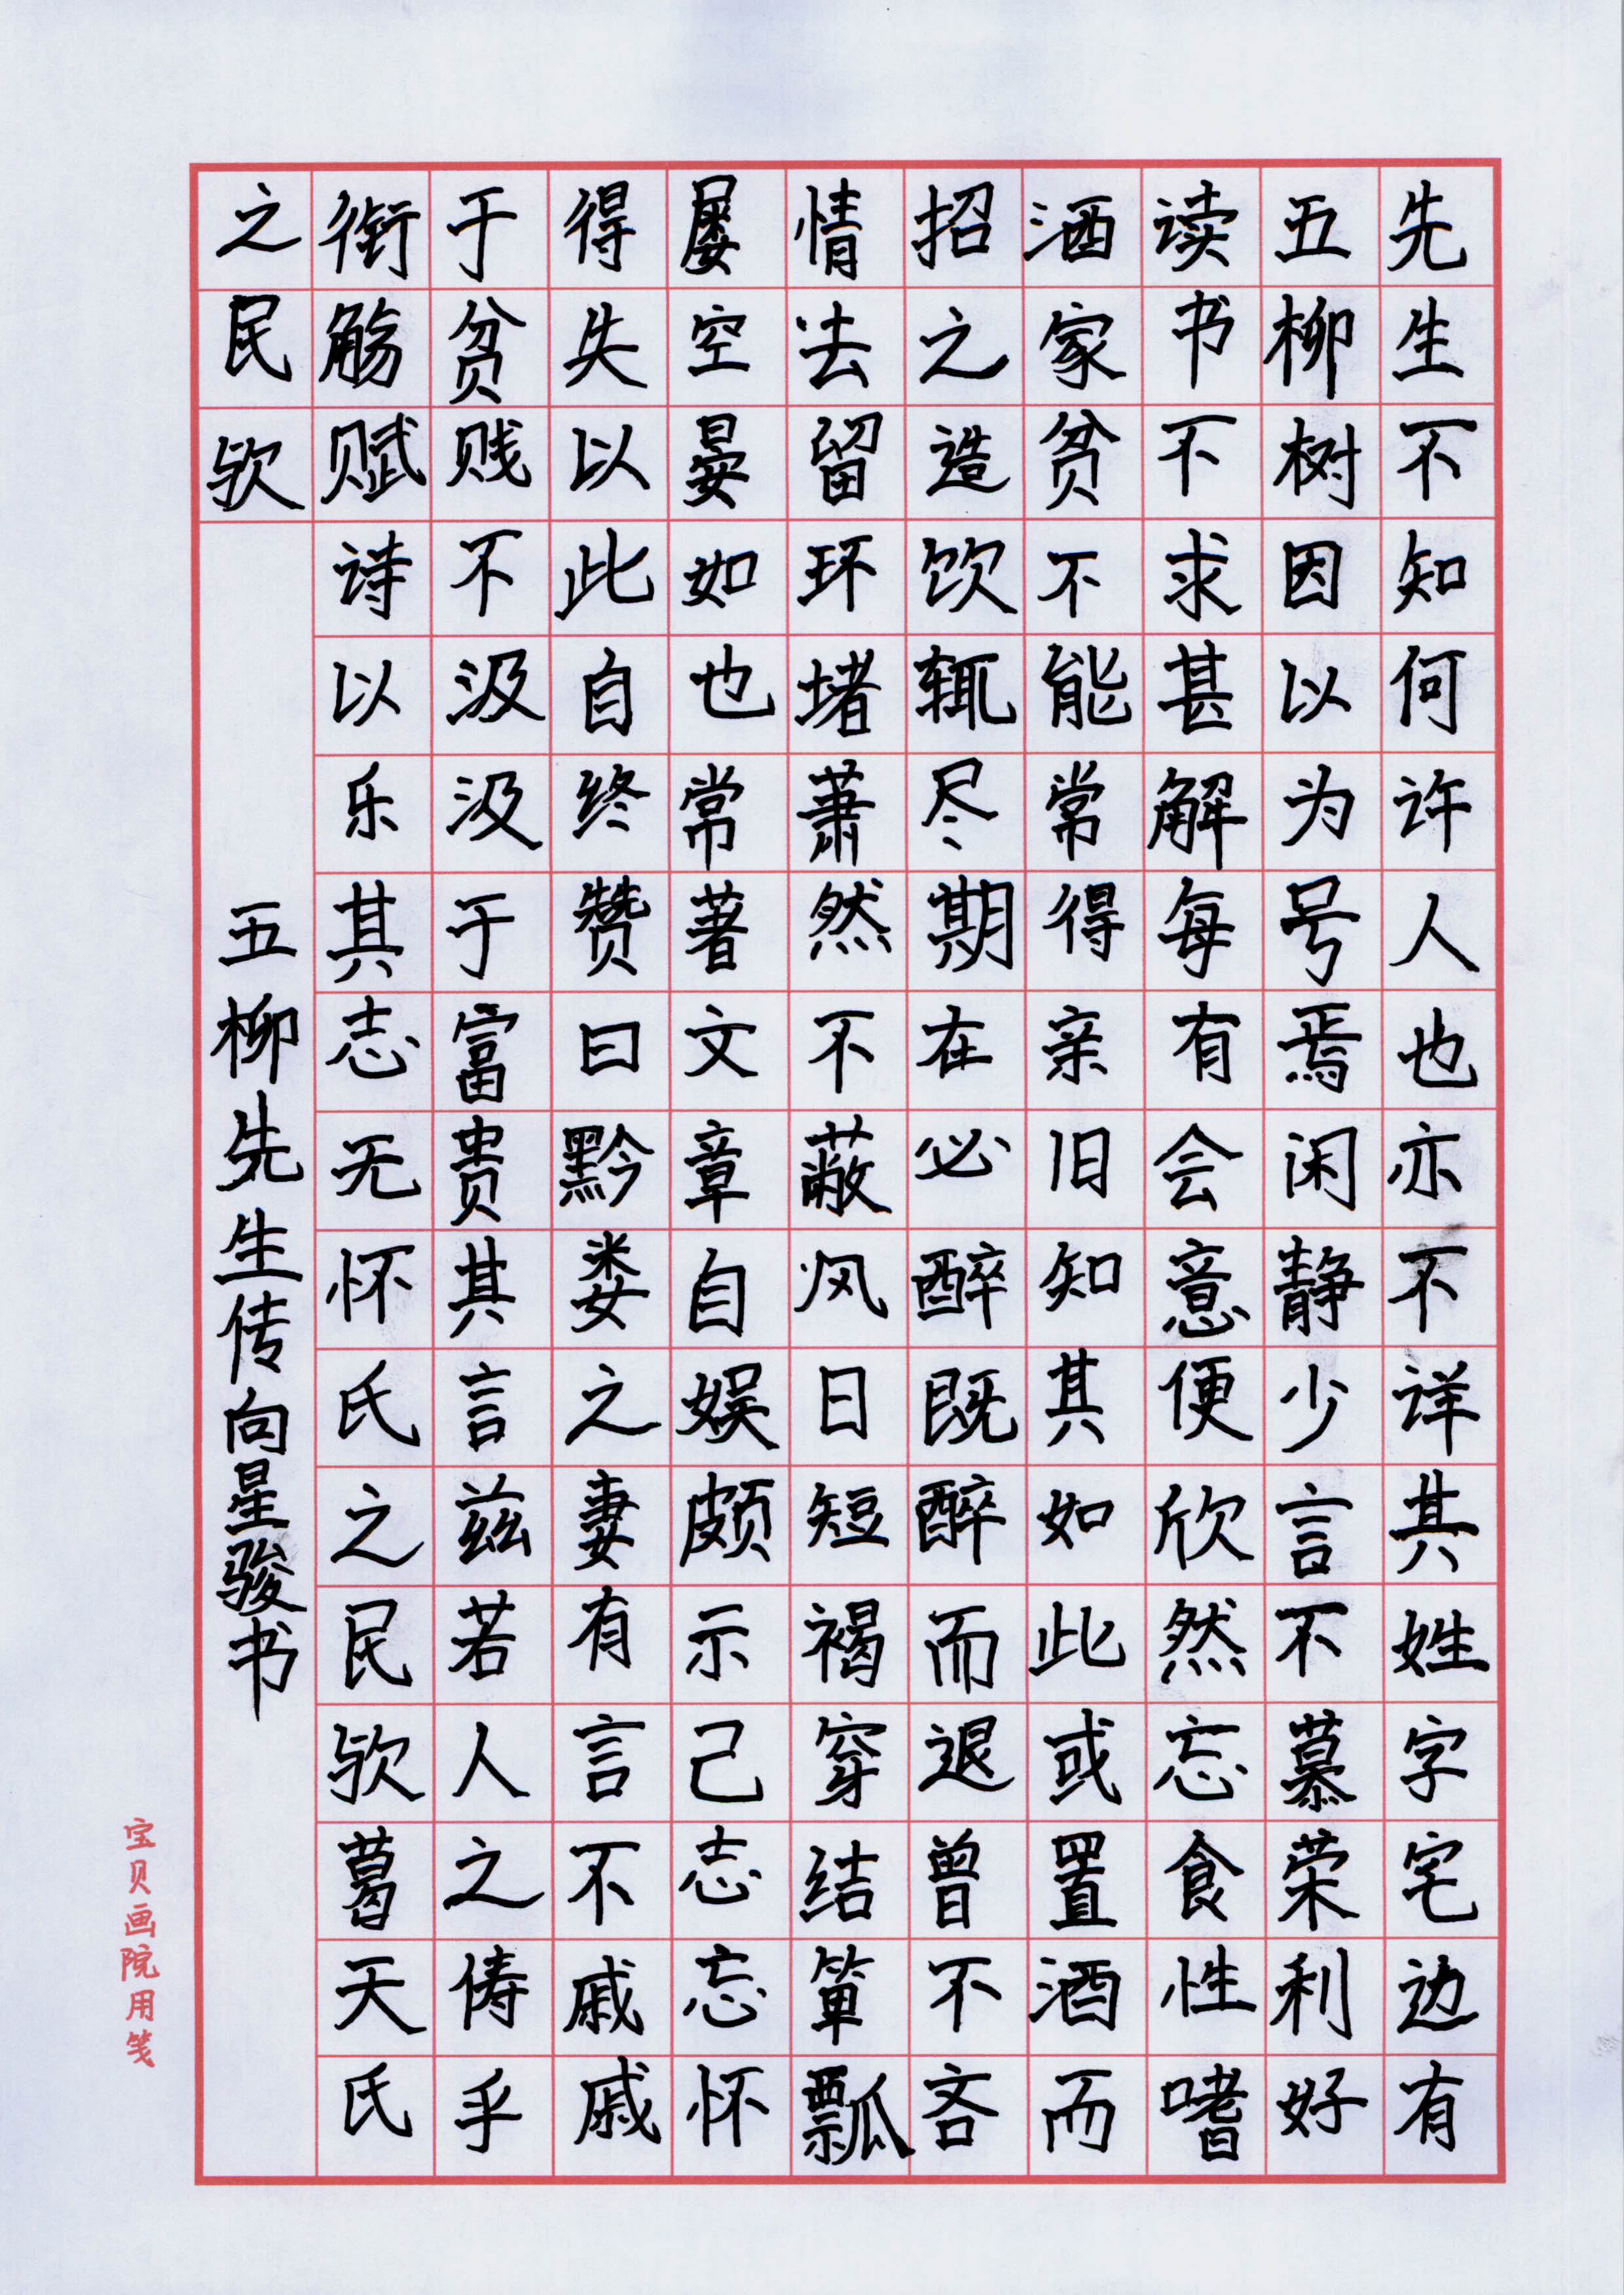 先生不知何许人也亦不详其姓字宅边有
五柳树因以为号焉闲静少言不慕荣利好
读书不求甚解每有会意便欣然忘食性嗜
酒家贫不能常得亲旧知其如此或置酒而
招之造饮辄尽期在必醉既醉而退曾不吝
情去留环堵萧然不蔽风日短褐穿结箪瓢
屡空晏如也常著文章自娱颇示己志忘怀
得失以此自终赞曰黔娄之妻有言不戚戚
于贫贱不汲汲于富贵其言兹若人之俦乎
衔觞赋诗以乐其志无怀氏之民欤葛天氏
之民欤
五柳先生传向星骏书
宝贝画院用笺